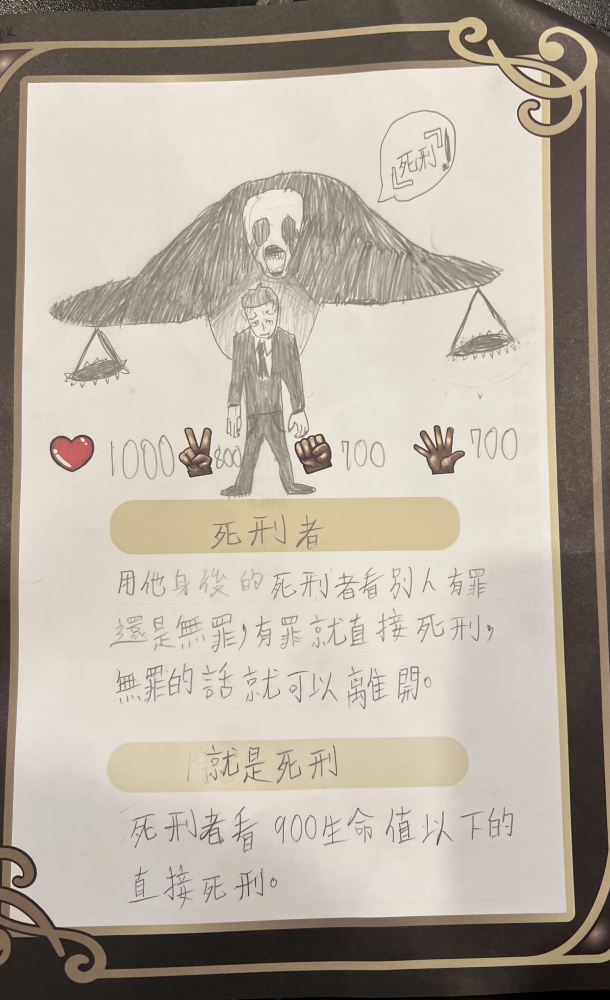 『死刑』!
1000
800
700
700
死刑者
用他身後的死刑者看別人有罪
還是無罪,有罪就直接死刑,
無罪的話就可以離開。
就是死刑
死刑者看900生命值以下的
直接死刑。